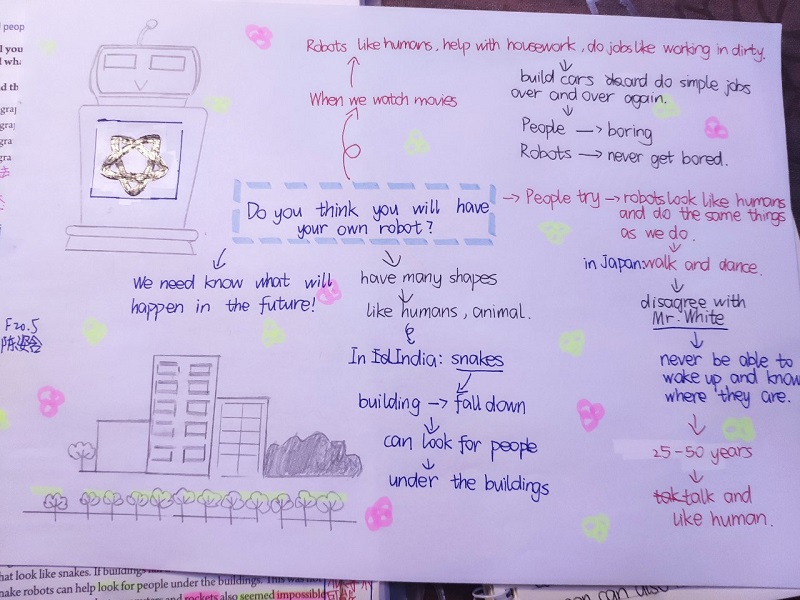 Robots like humans, help with housework, do jobs like working in dirty.
build cars and do simple jobs
over and over again.
People → boring
Robots → never get bored.
When we watch movies
Do you think you will have
your own robot?
→ People try → robots look like humans
and do the same things
as we do.
in Japan: walk and dance.
disagree with
Mr. White
never be able to
wake up and know
where they are.
25-50 years
talk and
like human.
We need know what will
happen in the future!
have many shapes
like humans, animal.
In India: snakes
building → fall down
can look for people
under the buildings
F20.5
hat look like snakes. If buildings
make robots can help look for people under the buildings. This was
rockets also seemed impossible